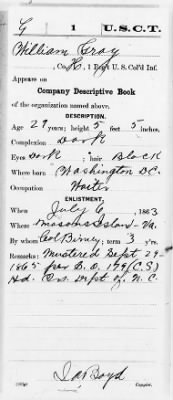 G | 1 | U.S.C.T.
William Gray
, Co. H, 1 Reg't U. S. Col'd Inf.
Appears on
Company Descriptive Book
of the organization named above.
DESCRIPTION.
Age 29 years; height 5 feet 5 inches.
Complexion Dark
Eyes Dark ; hair Black
Where born Washington DC.
Occupation Waiter
ENLISTMENT.
When July 6, 1863
Where Masons Island - Va.
By whom Col Birney; term 3 y'rs.
Remarks: Mustered Sept 29-
1865 per S.O. 179 (C.S)
Hd. Qrs. Dept of N. C
Jas Boyd
Copyist.